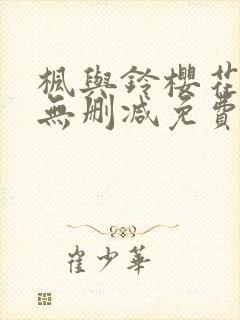 楓與鈴櫻花
無刪減免費
崔少華